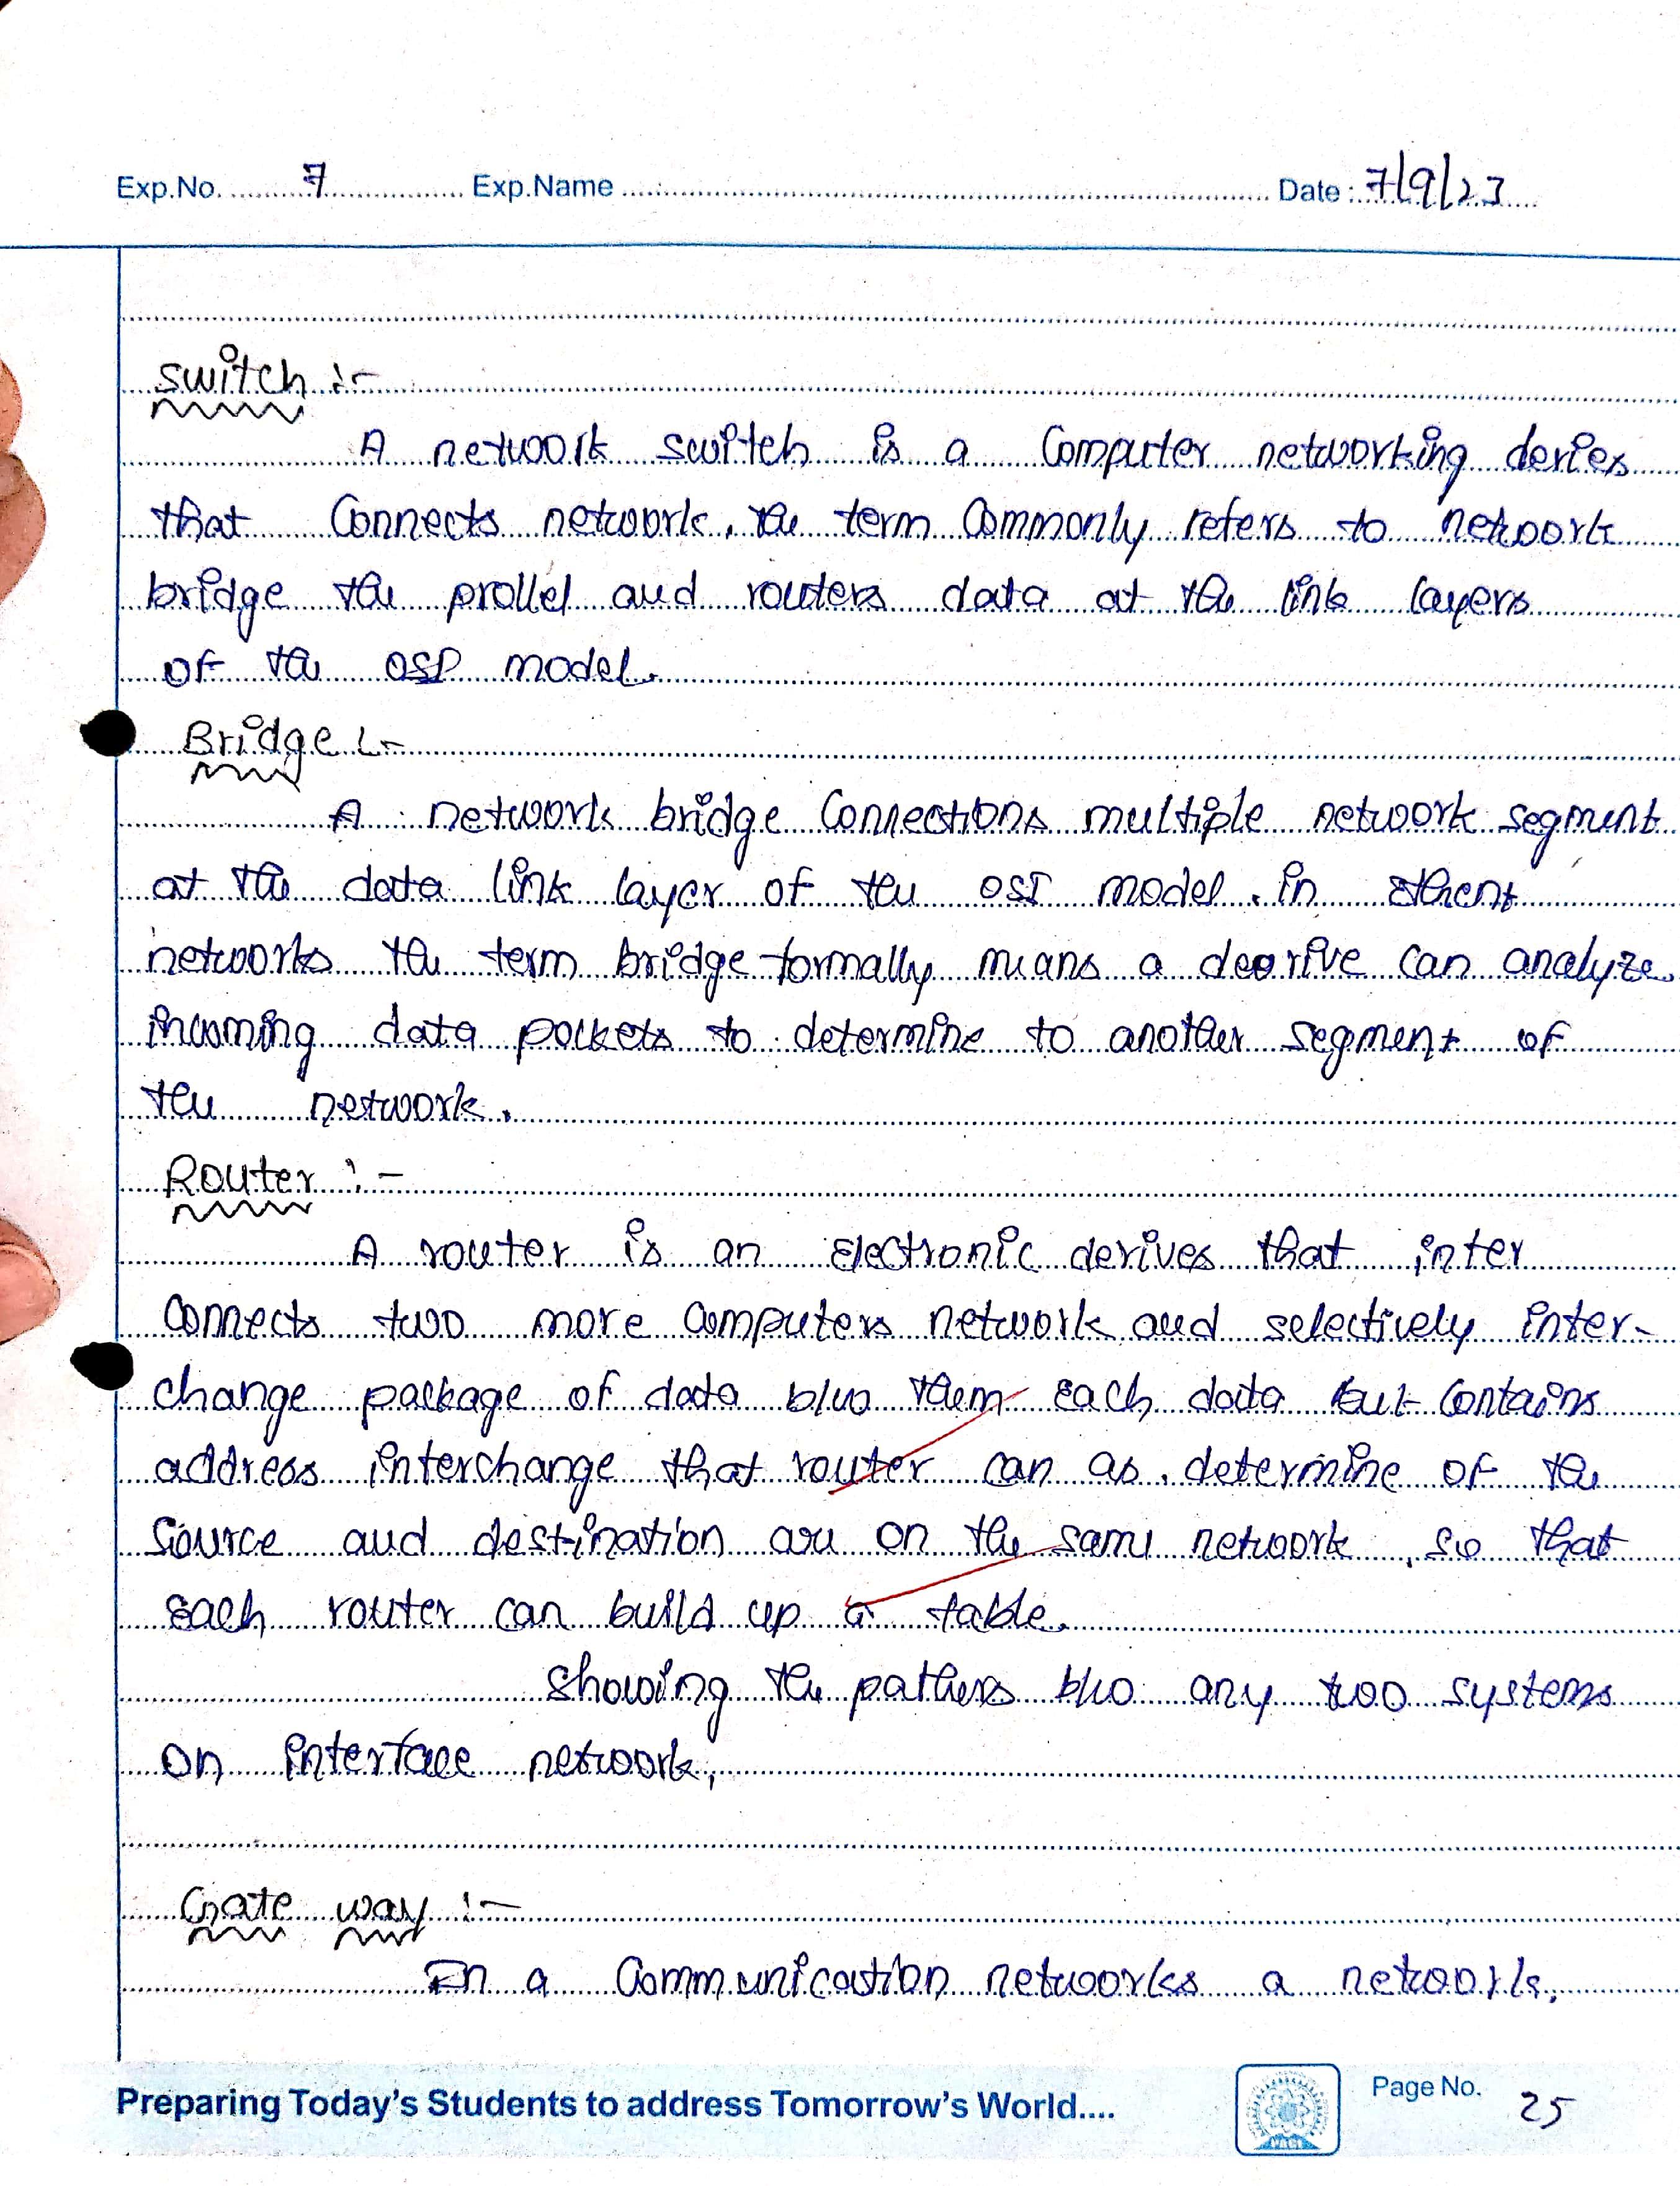 Exp.No. 7 Exp.Name Date : 7/9/23
Switch :-
A network switch is a Computer networking deries
that Connects network, the term Commonly refers to network
bridge the prollel and routers data at the link layers
of the OSI model.
Bridge :-
A network bridge Connections multiple network segment
at the data link layer of the OSI model. in
networks the term bridge formally means a can analyze
incoming data packets to determine to another segment of
the network.
Router :-
A router is an Electronic derives that inter
Connects two more Computers network and selectively inter-
change package of data b/w them each data but Contains
address interchange that router can as determine of the
Source and destination are on the same network, so that
each router can build up a table.
Showing the pathers b/w any two systems
on interface network,
Gate way :-
In a Communication networks a network,
Preparing Today's Students to address Tomorrow's World....
Page No. 25